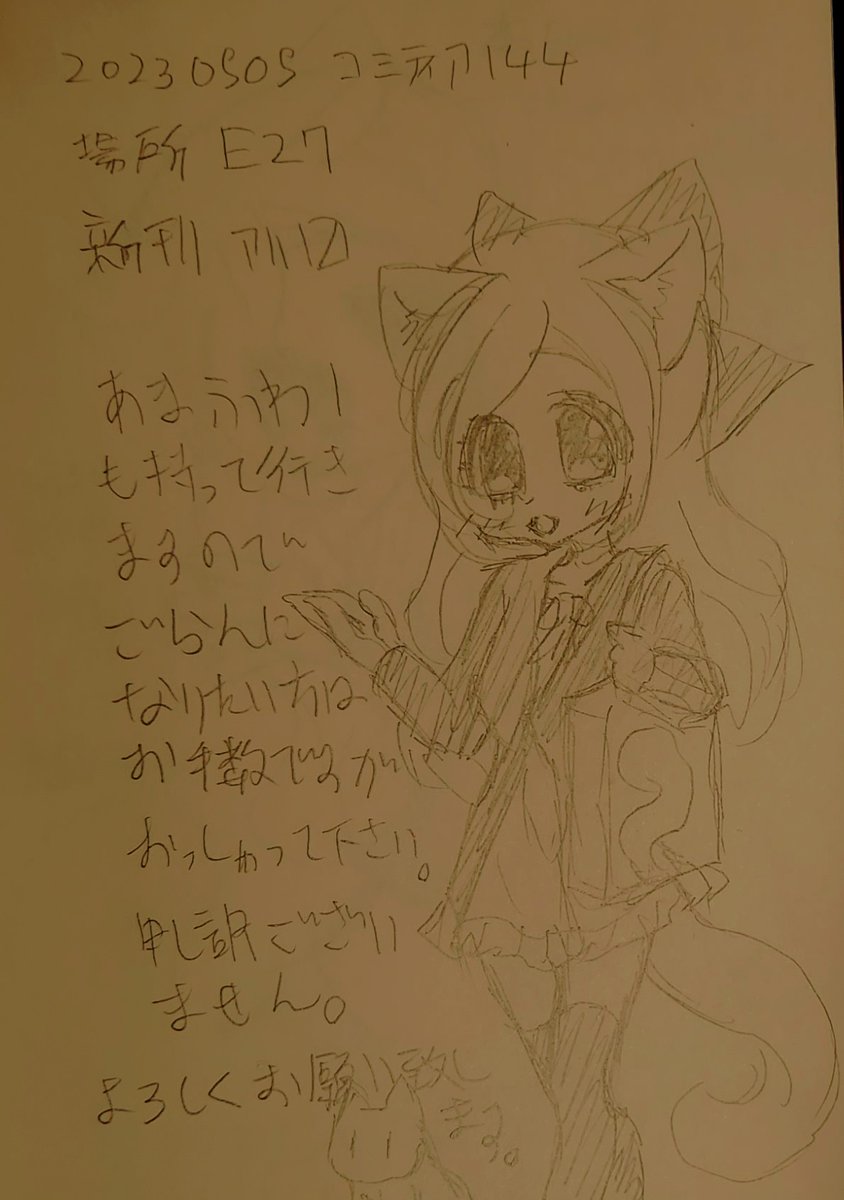 20230505 コミティア144
場所 E27
新刊
あまふわ1
も持って行き
ますので
ごらんに
なりたい方は
お手数ですが
おっしゃって下さい。
申し訳ござい
ません。
よろしくお願い致し
ます。